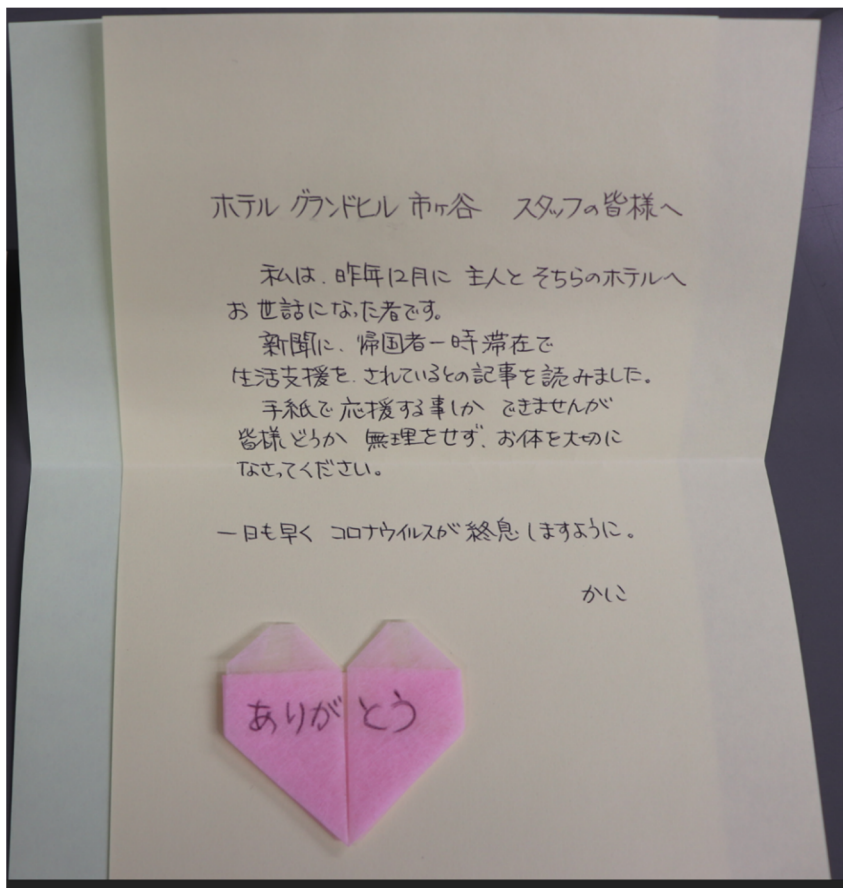 ホテル グランドヒル 市ヶ谷　スタッフの皆様へ
私は、昨年12月に 主人と そちらのホテルへ
お世話になった者です。
新聞に、帰国者一時滞在で
生活支援を、されているとの記事を読みました。
手紙で応援する事しか できませんが
皆様どうか 無理をせず、お体を大切に
なさってください。
一日も早く コロナウイルスが終息しますように。
かに
ありがとう